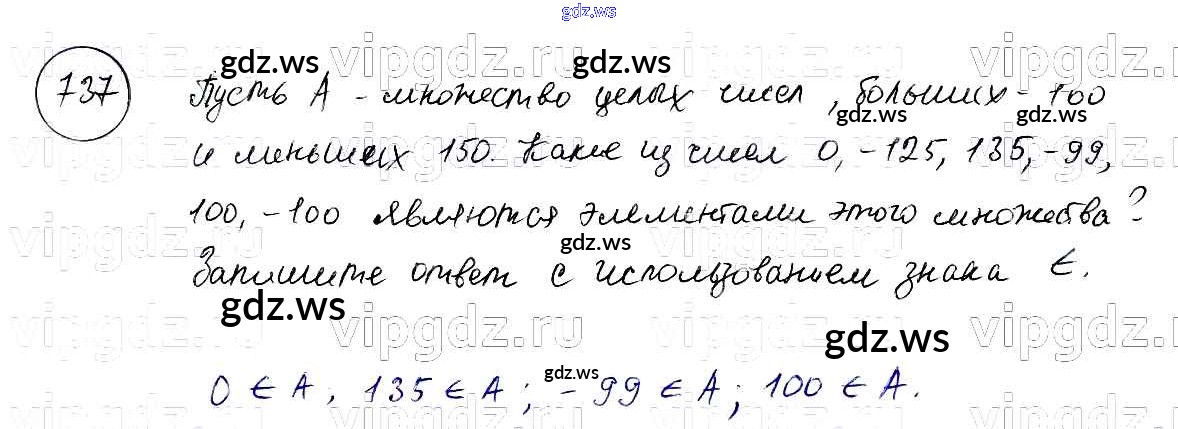 gdz.ws
737
Пусть А - множество целых чисел, больших -100
и меньших 150. Какие из чисел 0, -125, 135, -99,
100, -100 являются элементами этого множества?
Запишите ответ с использованием знака ∈.
0 ∈ А, 135 ∈ А; -99 ∈ А; 100 ∈ А.
gdz.ws
gdz.ws
gdz.ws
gdz.ws
gdz.ws
gdz.ws
gdz.ws
gdz.ws
vipgdz.ru
vipgdz.ru
vipgdz.ru
vipgdz.ru